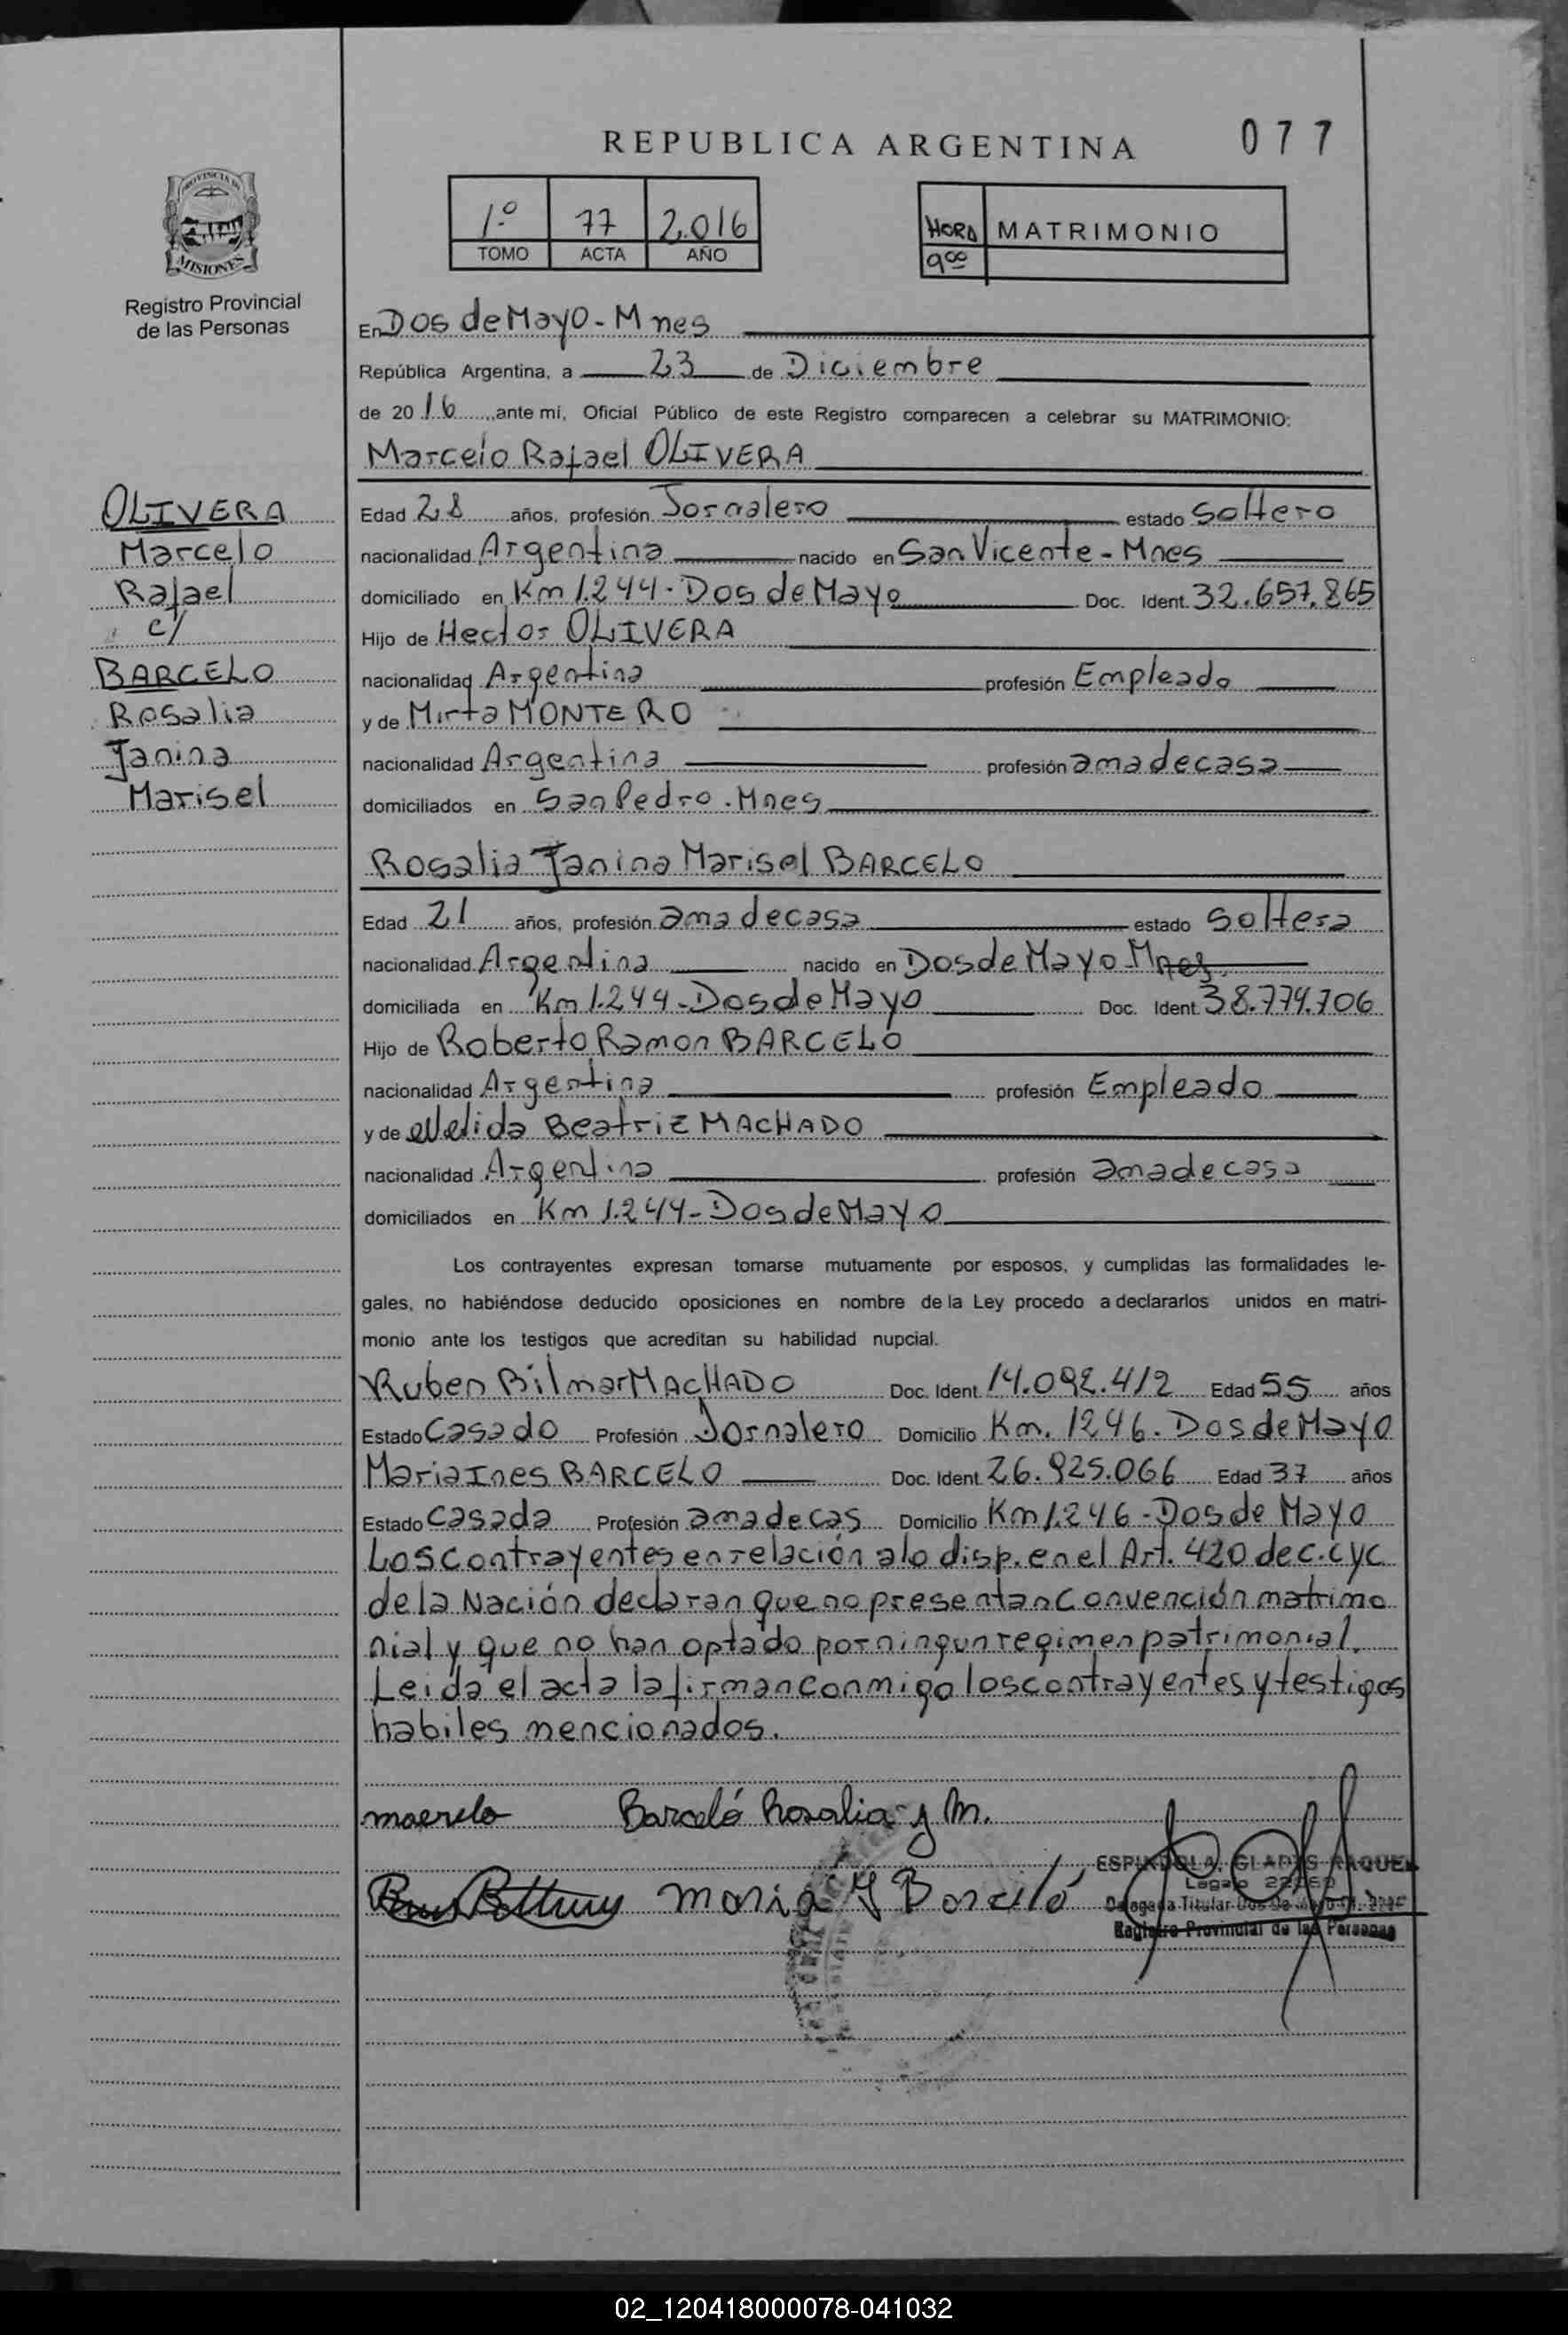 REPUBLICA ARGENTINA
077
1º 77 2.016
TOMO ACTA AÑO
HORA MATRIMONIO
9ºº
PROVINCIA DE
MISIONES
Registro Provincial
de las Personas
En Dos de Mayo - Mnes
República Argentina, a 23 de Diciembre
de 2016, ante mí, Oficial Público de este Registro comparecen a celebrar su MATRIMONIO:
Marcelo Rafael OLIVERA
OLIVERA
Marcelo
Rafael
c/
BARCELO
Rosalia
Janina
Marisel
Edad 28 años, profesión Jornalero estado soltero
nacionalidad Argentina nacido en San Vicente - Mnes
domiciliado en Km 1.244 - Dos de Mayo Doc. Ident. 32.657.865
Hijo de Hector OLIVERA
nacionalidad Argentina profesión Empleado
y de Mirta MONTERO
nacionalidad Argentina profesión ama de casa
domiciliados en San Pedro - Mnes
Rosalia Janina Marisel BARCELO
Edad 21 años, profesión ama de casa estado soltera
nacionalidad Argentina nacido en Dos de Mayo - Mnes
domiciliada en Km 1.244 - Dos de Mayo Doc. Ident. 38.774.706
Hijo de Roberto Ramon BARCELO
nacionalidad Argentina profesión Empleado
y de Beatriz MACHADO
nacionalidad Argentina profesión ama de casa
domiciliados en Km 1.244 - Dos de Mayo
Los contrayentes expresan tomarse mutuamente por esposos, y cumplidas las formalidades le-
gales, no habiéndose deducido oposiciones en nombre de la Ley procedo a declararlos unidos en matri-
monio ante los testigos que acreditan su habilidad nupcial.
Ruben Bilmar MACHADO Doc. Ident. 14.092.412 Edad 55 años
Estado Casado Profesión Jornalero Domicilio Km. 1246. Dos de Mayo
Maria Ines BARCELO Doc. Ident. 26.925.066 Edad 37 años
Estado Casada Profesión ama de cas Domicilio Km 1.246 - Dos de Mayo
Los contrayentes en relación a lo disp. en el Art. 420 de c.c y c
de la Nación declaran que no presentan Convención matrimo
nial y que no han optado por ningun regimen patrimonial.
Leida el acta la firman conmigo los contrayentes y testigos
habiles mencionados.
Barceló Rosalia J M.
Maria Y Barceló
ESPINDOLA, GLADYS RAQUEL
Legajo
Delegada Titular Dos de Mayo
Registro Provincial de las Personas
02_120418000078-041032